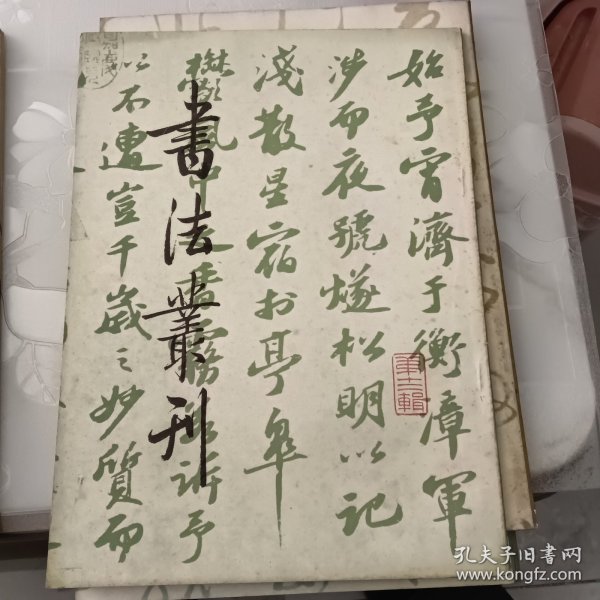 書法叢刊
始予宵濟于衡漳軍
涉而夜號燧松明以記
淺散星宿於亭皋
風中霧訴予
以不遭豈千歲之妙質而
第十二輯
孔夫子旧書网
www.kongfz.com